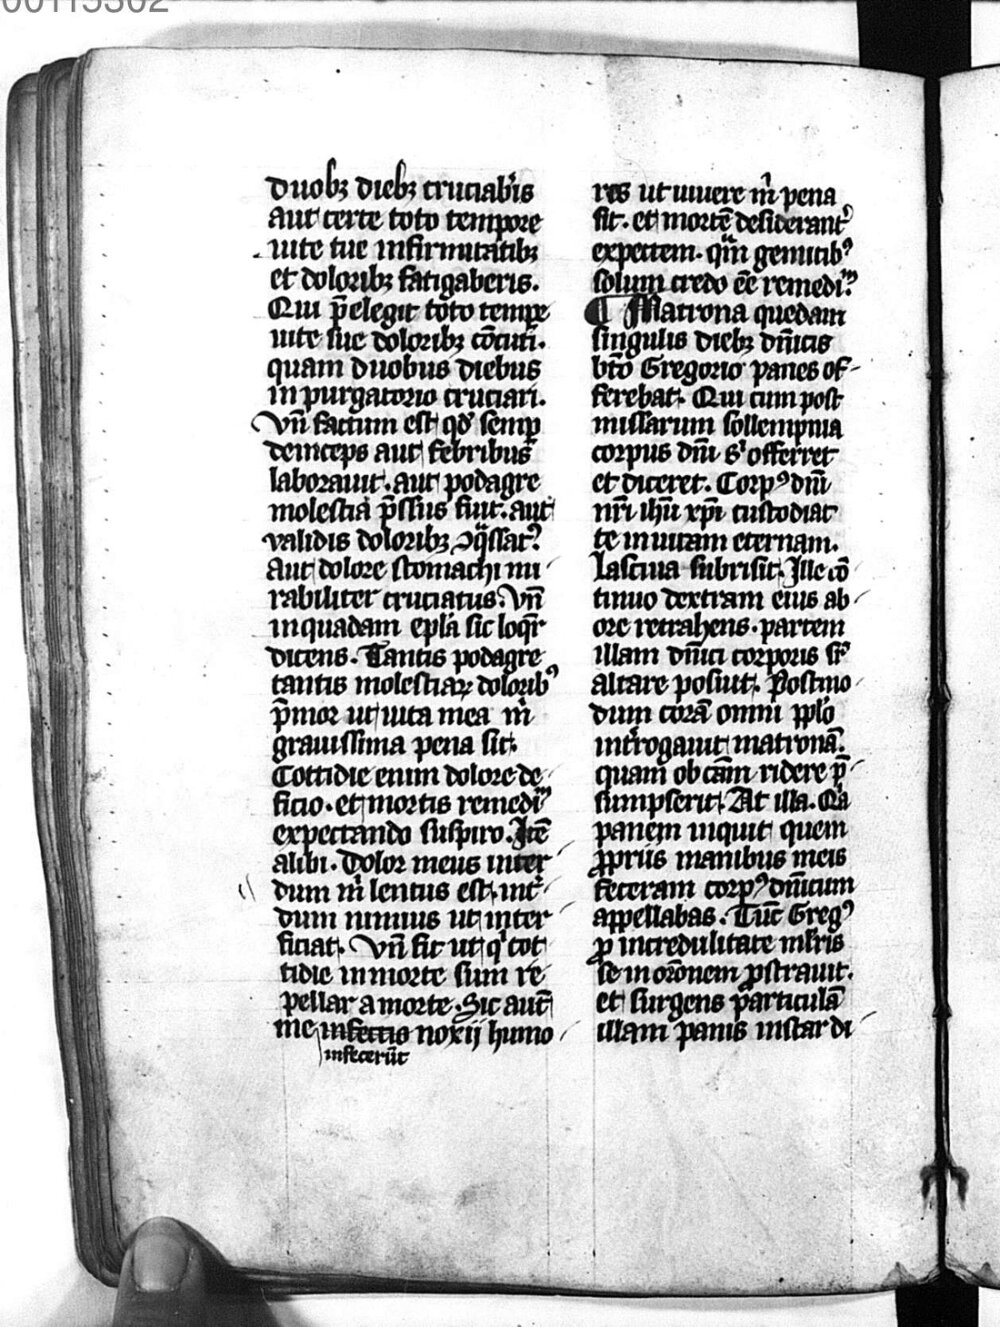 duobꝫ diebꝫ cruciab'is
aut certe toto tempore
uite tue infirmitatibꝫ
et doloribꝫ fatigaberis.
Qui p̄elegit toto temp̲e
uite sue doloribꝫ cōcuti.
quam duobus diebus
in purgatorio cruciari.
Vn̄ factum est qd̓ semp
deinceps aut febribus
laborauit. aut podagre
molestia p̄ssus fiut. aut
validis doloribꝫ ꝯq̄ssatꝰ
Aut dolore stomachi mi
rabiliter cruciatus. Vn̄
in quadam ep̄la sic loq̄r
dicens. Tantis podagre
tantis molestiaꝝ doloribꝰ
p̄mor ut uita mea m̓
grauissima pena sit.
Cottidie enim dolore de
ficio. et mortis remediū
expectando suspiro. Itē
alibi. Dolor meus inter
dum m̓ lentus est. int̓
dum nimius ut inter
ficiat. Vn̄ fit ut q̓ cot
tidie in morte sum re
pellar a morte. Sic aut̄
me infectis noxij humo
infecerūt
res ut uiuere m̓ pena
sit. et mortē desiderant̓
expectem. q̄m gemitibꝰ
solum credo ēē remediū
¶ Matrona quedam
singulis diebꝫ dn̄icis
bt̄o Gregorio panes of
ferebat. Qui cum post
missarum sollempnia
corpus dn̄i s' offerret
et diceret. Corpꝰ dn̄i
nr̄i ih̄u xp̄i custodiat
te in uitam eternam.
Lasciua subrisit. Ille cō
tinuo dextram eius ab
ore retrahens. partem
illam dn̄ici corporis sr̄
altare posiut. Postmo
dum corā omni pplo
int̓rogauit matronā.
quam ob cām ridere p̄
sumpserit. At illa. Q̓a
panem inquit quem
ꝓpriis manibus meis
feceram corpꝰ dn̄icum
appellabas. Tūc Gregꝰ
ꝓ incredulitate ml̓ris
se in or̄onem ꝓstrauit.
et surgens particulā
illam panis instar di